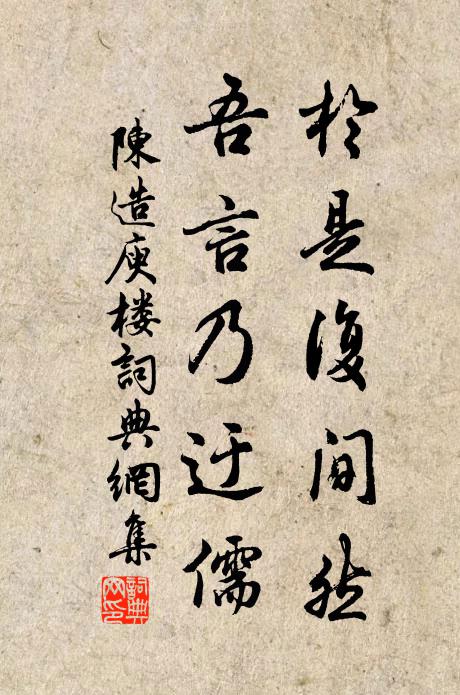 於是復間然
吾言乃迂儒
陳造庾楼詞典網集
詞典网印